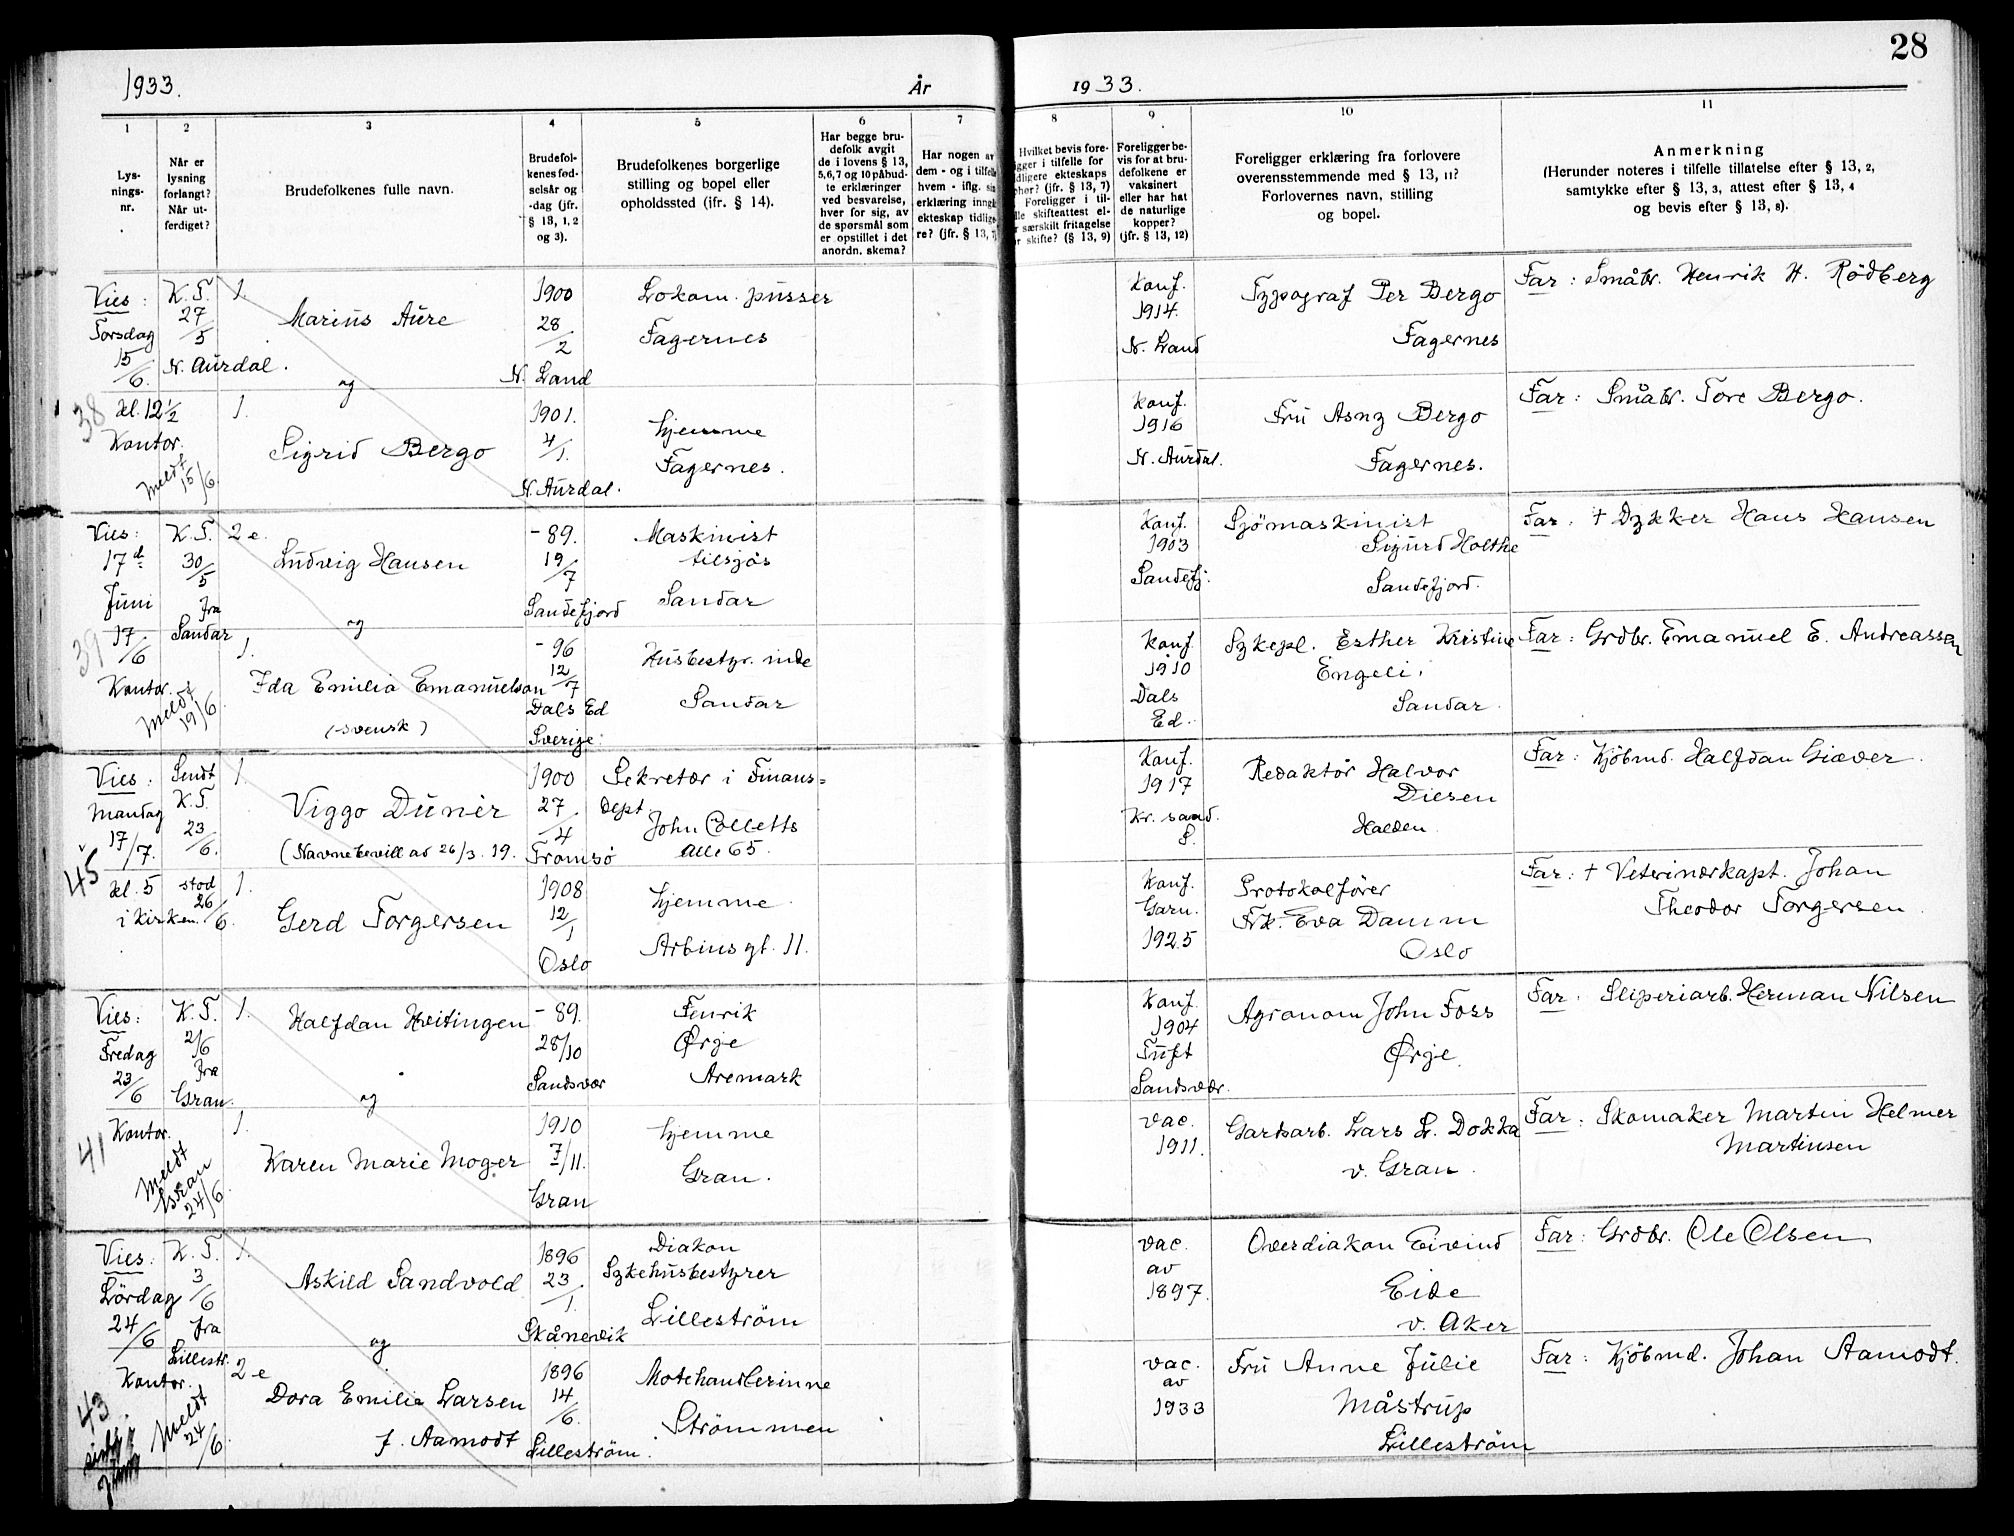 28
1933.
År
1933.
1
Lys-
nings-
nr.
2
Når er
lysning
forlangt?
Når ut-
ferdiget?
3
Brudefolkenes fulle navn.
4
Brudefol-
kenes fød-
selsår og
-dag (jfr.
§ 13, 1, 2
og 3).
5
Brudefolkenes borgerlige
stilling og bopel eller
opholdssted (jfr. § 14).
6
Har begge bru-
defolk avgit
de i lovens § 13,
5,6,7 og 10 påbud-
te erklæringer
ved besvarelse,
hver for sig, av
de spørsmål som
er opstillet i det
anordn. skema?
7
Har nogen av
dem - og i tilfelle
hvem - iflg. sin
erklæring inngått
ekteskap tidlige-
re? (jfr. § 13,
8
Hvilket bevis fore-
ligger i tilfelle for
tidligere ekteskaps
ophør? (jfr. § 13, 7)
Foreligger i til-
felle skifteattest el-
ler særskilt fritagelse
for skifte? (§ 13, 9)
9
Foreligger be-
vis for at bru-
defolkene er
vaksinert
eller har hat
de naturlige
kopper?
(jfr. § 13, 12)
10
Foreligger erklæring fra forlovere
overensstemmende med § 13, 11?
Forlovernes navn, stilling
og bopel.
11
Anmerkning
(Herunder noteres i tilfelle tillatelse efter § 13, 2,
samtykke efter § 13, 3, attest efter § 13, 4
og bevis efter § 13, 8).
38
Vies:
Torsdag
15/6.
kl. 12½
Kontor.
Meldt
15/6
K.T.
27/5
N. Aurdal.
1.
Marius Aure
og
1900
28/2
N. Land
Lokom. pusser
Fagernes
Konf.
1914.
N. Land
Typograf Per Bergo
Fagernes
Far: Småbr. Henrik H. Rödberg
1.
Sigrid Bergo
1901.
4/1.
N. Aurdal.
hjemme
Fagernes.
Konf.
1916
N. Aurdal.
Fru Asny Bergo
Fagernes.
Far: Småbr. Tore Bergo.
39
Vies:
17d
Juni
17/6
Kontor.
Meldt
19/6
K.T.
30/5
fra
Sandar
2 e.
Ludvig Hansen
og
- 89.
19/7
Sandefjord
Maskinist
tilsjös
Sandar
Konf.
1903
Sandefj.
Sjömaskinist
Sigurd Holthe
Sandefjord.
Far: + Dykker Hans Hansen
1.
Ida Emilia Emanuelson
(svensk)
- 96
12/7
Dals Ed
Sverige.
Husbestyr.inde
Sandar
Konf
1910
Dals
Ed.
Sykepl. Esther Kristine
Engeli.
Sandar
Far: Grdbr. Emanuel E. Andreasson
45
Vies:
Mandag
17/7.
kl. 5
i kirken.
Sendt
K.T.
23/6.
stod
26/6.
1.
Viggo Dunèr
(Navnebevill av 26/3. 19.
1900
27/4
Tromsö
Sekretær i Finans=
dept.
John Colletts
Alle 65.
Konf.
1917
Kr. sand.
S.
Redaktör Halvor
Diesen
Halden
Far: Kjöbmd. Halfdan Giæver.
1.
Gerd Torgersen
1908
12/1
Oslo
hjemme
Arbins gt. 11.
Konf.
Garn.
1925
Protokolförer
Frk. Eva Damm
Oslo
Far: + Veterinærkapt. Johan
Theodor Torgersen
41
Vies:
Fredag
23/6
Kontor.
Meldt
Gran
24/6.
K.T.
2/6
fra
Gran.
1.
Halfdan Hvitingen
og
- 89.
28/10
Sandsvær
Fenrik
Ørje
Aremark
Konf.
1904
Tuft
Sandsvær.
Agronom John Foss
Ørje.
Far: Sliperiarb. Herman Nilsen
1.
Karen Marie Moger
1910
7/11.
Gran
hjemme
Gran.
Vac.
1911.
Gardsarb. Lars L. Dokka
v. Gran.
Far: Skomaker Martin Helmer
Martinsen
43
Vies:
Lördag
24/6
Kontor.
Meldt
24/6
K.T.
3/6
fra
Lillestr.
1.
Askild Sandvold
og
1896
23/1.
Skånevik
Diakon
Sykehusbestyrer
Lilleström
Vac.
av
1897.
Overdiakon Eivind
Eide
v. Aker
Far: Grdbr. Ole Olsen
2 e
Dora Emilie Larsen
f. Aamodt
1896
14/6.
Lilleström.
Motehandlerinne
Strömmen
Vac.
av
1933
Fru Anne Julie
Måstrup
Lilleström
Far: Kjöbmd. Johan Aamodt.